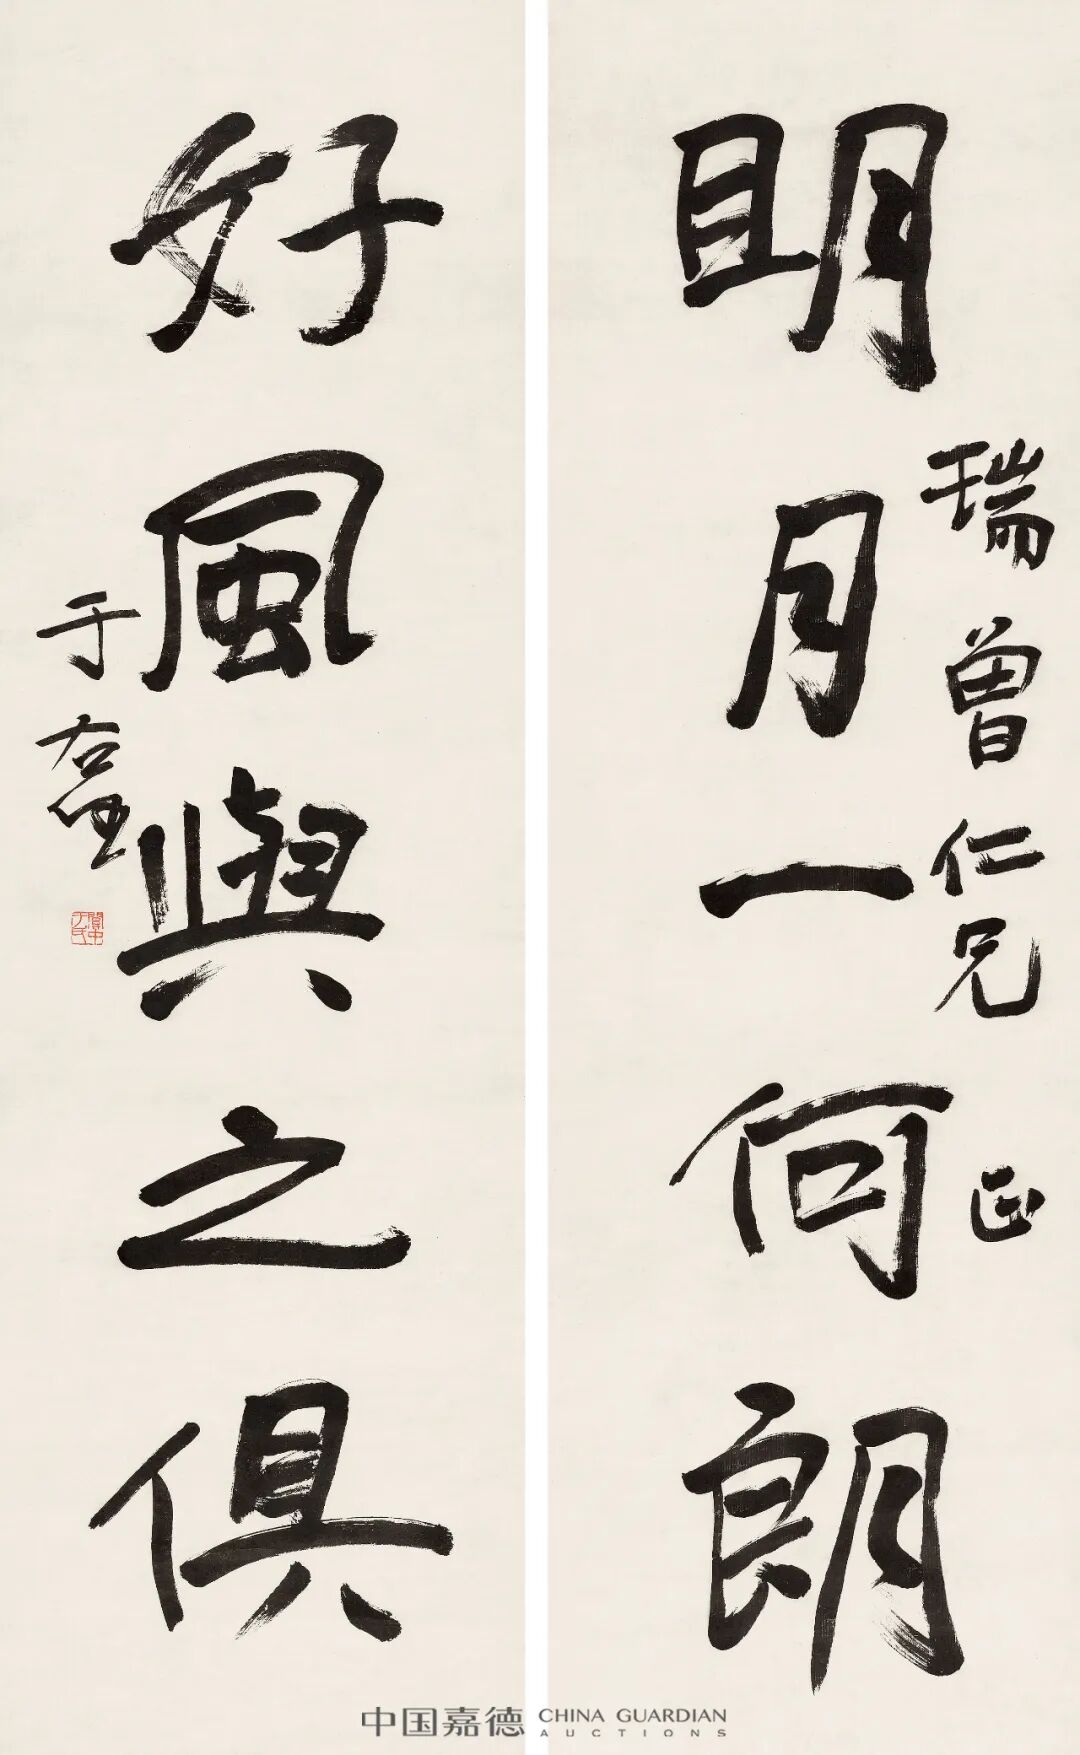 明月一何朗
瑞曾仁兄 正
好風與之俱
于右任
關中于氏
中国嘉德 CHINA GUARDIAN
AUCTIONS